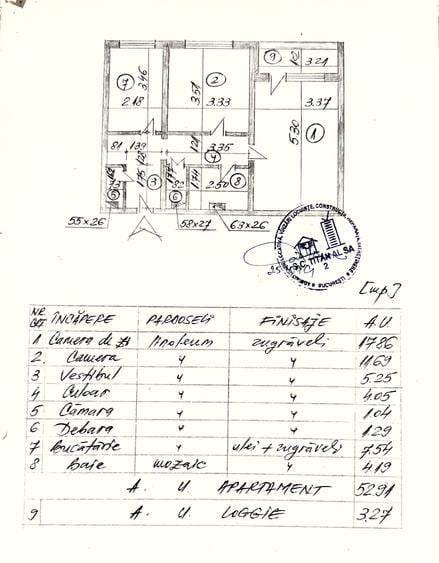 9 1.02 3.21
7 3.46 2 3.51
2.18 3.33 3.37
5.30 1
81 1.39 1.28 1.21 3.35
4
1.75 3 1.74 2.50 8
5 6
55x26 58x27 63x26
S.C. TITAN AL SA
2
BUCUREȘTI
[mp.]
NR. CRT ÎNCĂPERE PARDOSELI FINISAJE A.U.
1 Camera de zi linoleum zugrăveli 17.86
2. Camera " " 11.69
3 Vestibul " " 5.25
4 Culoar " " 4.05
5 Cămara " " 1.04
6 Debara " " 1.29
7 Bucătărie " ulei + zugrăveli 7.54
8 Baie mozaic " 4.19
A. U. APARTAMENT 52.91
9 A. U. LOGGIE 3.27